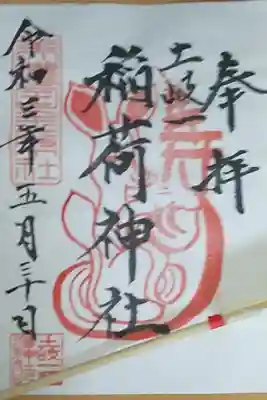 奉拝
土岐一
稲荷神社
令和三年五月三十日